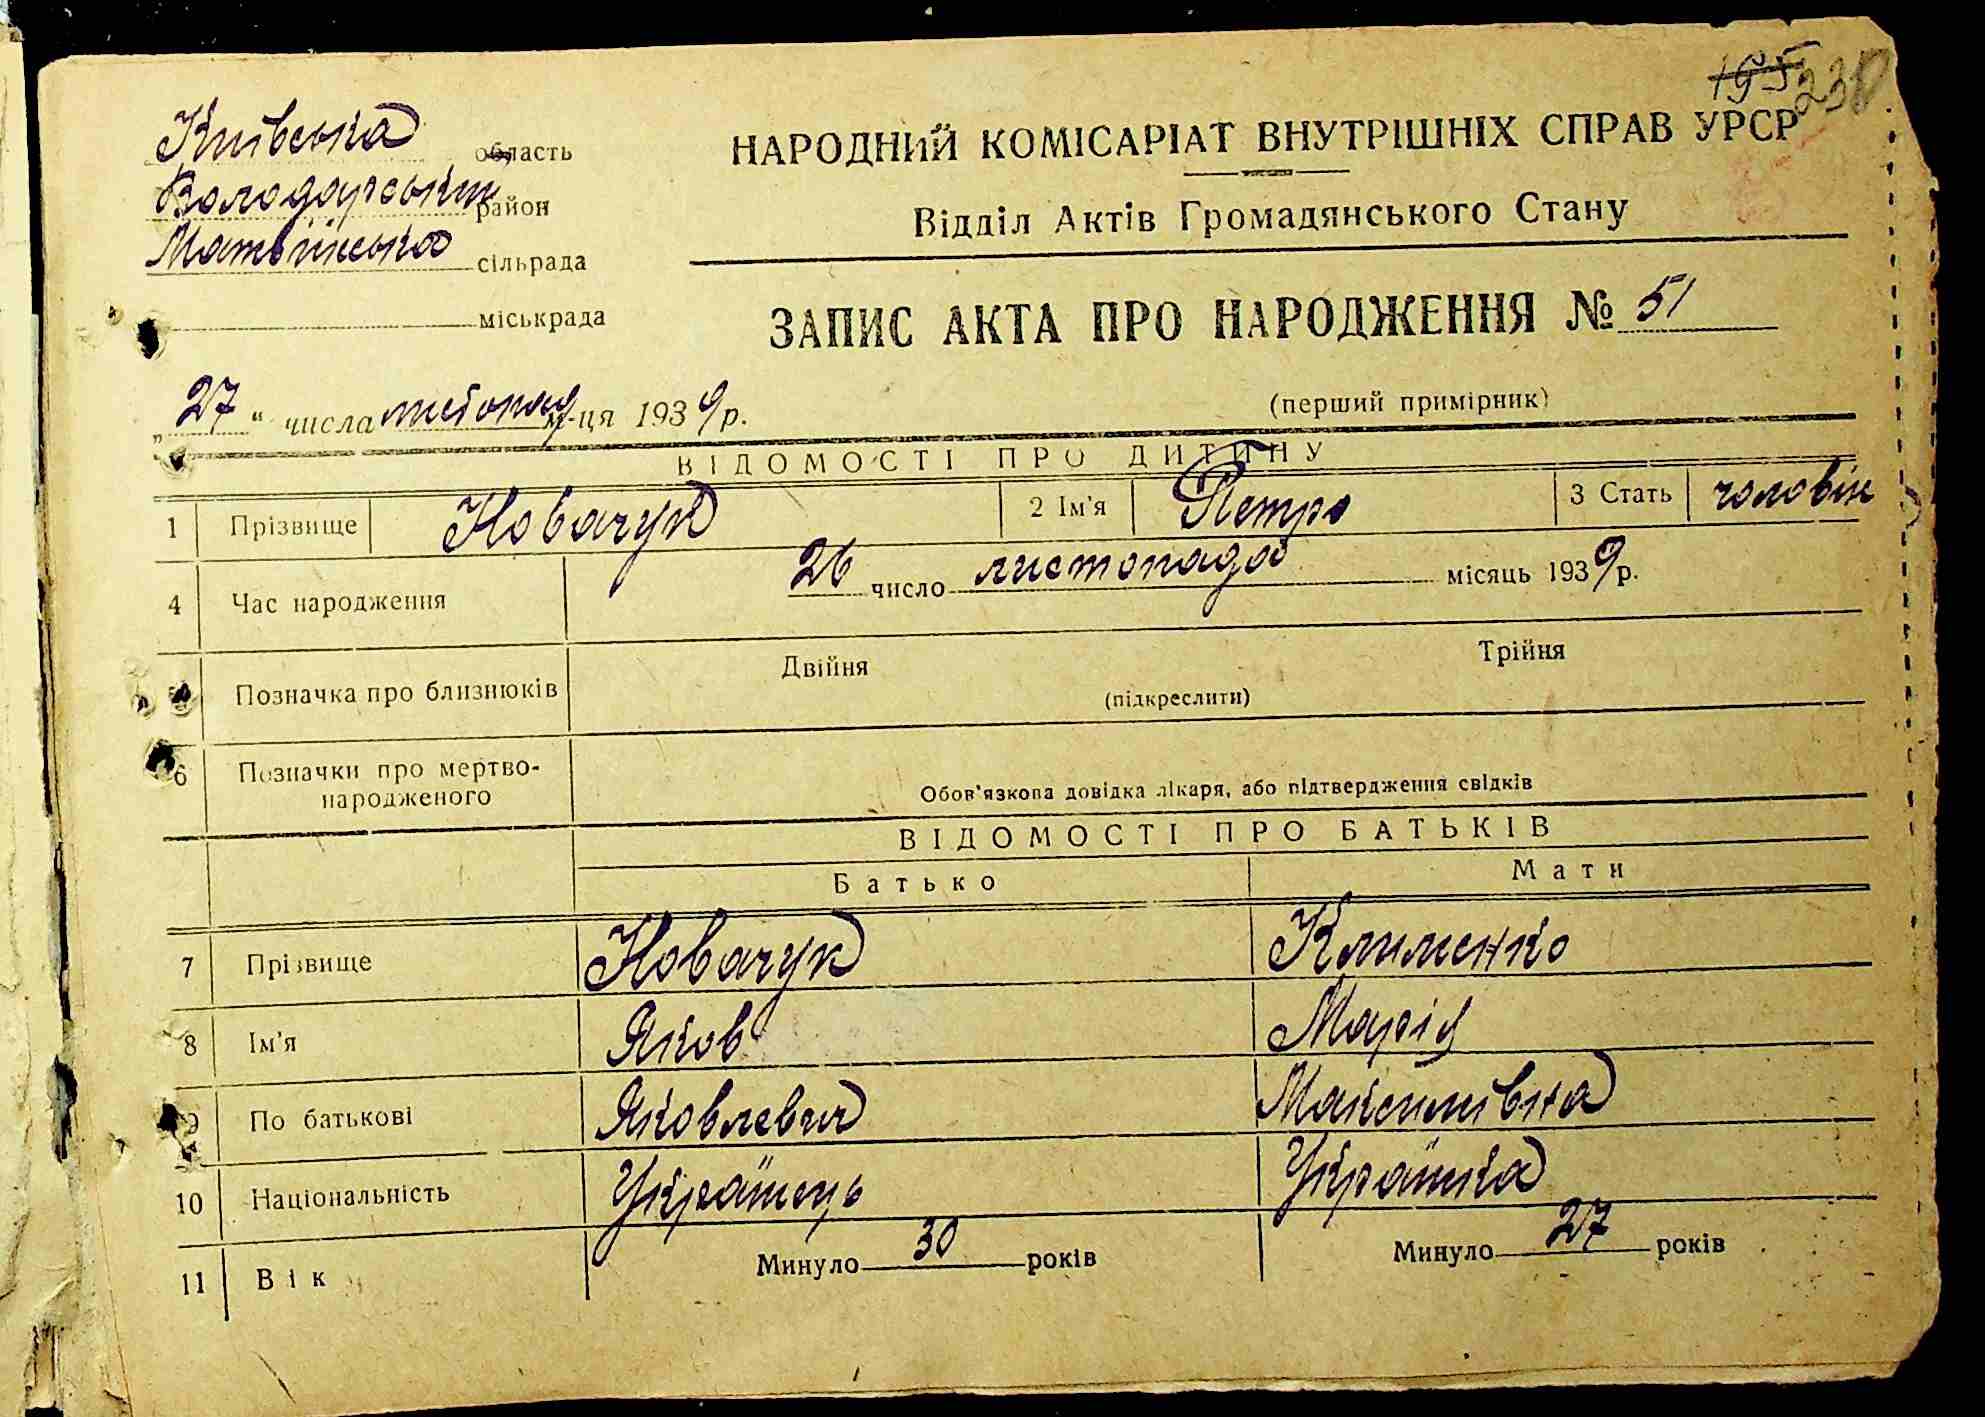 195 230
Київська область
Володарський район
Матвіївська сільрада
міськрада
НАРОДНИЙ КОМІСАРІАТ ВНУТРІШНІХ СПРАВ УРСР
Відділ Актів Громадянського Стану
ЗАПИС АКТА ПРО НАРОДЖЕННЯ № 51
„27“ числа листопад м-ця 1939 р.
(перший примірник)
ВІДОМОСТІ ПРО ДИТИНУ
1 Прізвище Новачук 2 Ім'я Петро 3 Стать чоловіч
4 Час народження 26 число листопада місяць 1939 р.
Позначка про близнюків Двійня Трійня
(підкреслити)
6 Позначки про мертво-
народженого Обов'язкова довідка лікаря, або підтвердження свідків
ВІДОМОСТІ ПРО БАТЬКІВ
Батько Мати
7 Прізвище Новачук Клименко
8 Ім'я Яков Марія
9 По батькові Яковлевич Максимівна
10 Національність Українець Українка
11 Вік Минуло 30 років Минуло 27 років